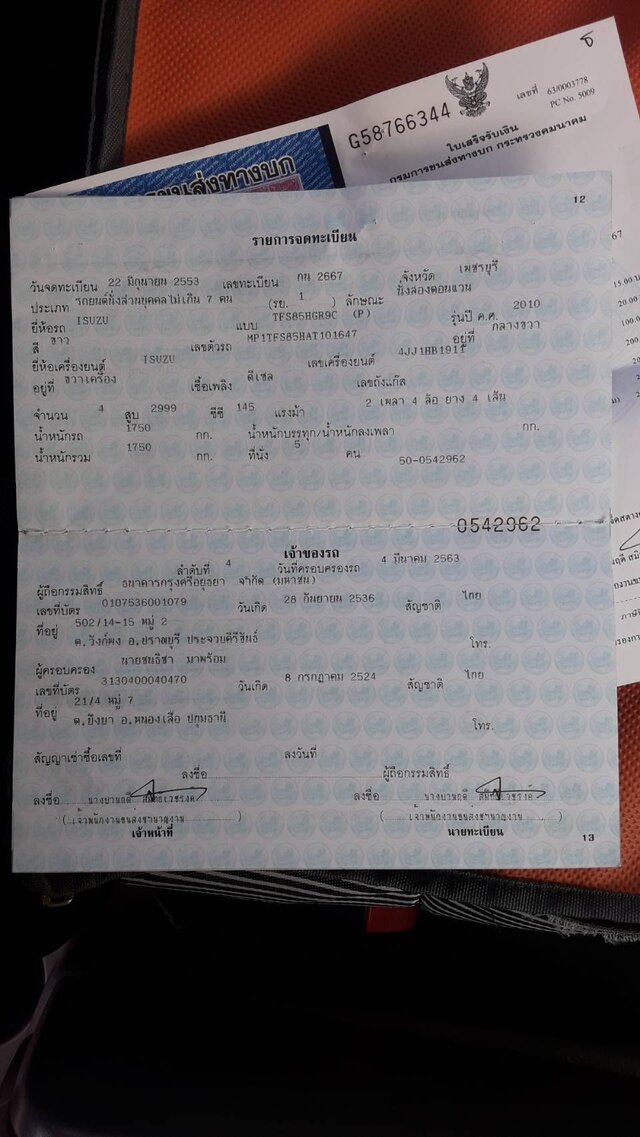 ธ
เลขที่ 63/0003778
PC No. 5009
G58766344
ใบเสร็จรับเงิน
กรมการขนส่งทางบก กระทรวงคมนาคม
ขนส่งทางบก
12
รายการจดทะเบียน
วันจดทะเบียน 22 มิถุนายน 2553 เลขทะเบียน กน 2667 จังหวัด เพชรบุรี
ประเภท รถยนต์นั่งส่วนบุคคลไม่เกิน 7 คน (รย. 1 ) ลักษณะ นั่งสองตอนแวน
ยี่ห้อรถ ISUZU แบบ TFS85HGR9C (P) รุ่นปี ค.ศ. 2010
สี ขาว เลขตัวรถ MP1TFS85HAT101647 อยู่ที่ กลางขวา
ยี่ห้อเครื่องยนต์ ISUZU เลขเครื่องยนต์ 4JJ1HB1911
อยู่ที่ ขวาเครื่อง เชื้อเพลิง ดีเซล เลขถังแก๊ส
จำนวน 4 สูบ 2999 ซีซี 145 แรงม้า 2 เพลา 4 ล้อ ยาง 4 เส้น
น้ำหนักรถ 1750 กก. น้ำหนักบรรทุก/น้ำหนักลงเพลา กก.
น้ำหนักรวม 1750 กก. ที่นั่ง 5 คน 50-0542962
0542962
เจ้าของรถ
ลำดับที่ 4 วันที่ครอบครองรถ 4 มีนาคม 2563
ผู้ถือกรรมสิทธิ์ ธนาคารกรุงศรีอยุธยา จำกัด (มหาชน)
เลขที่บัตร 0107536001079 วันเกิด 28 กันยายน 2536 สัญชาติ ไทย
ที่อยู่ 502/14-15 หมู่ 2
ต.วังก์พง อ.ปราณบุรี ประจวบคีรีขันธ์ โทร.
ผู้ครอบครอง นายชนธิชา มาพร้อม
เลขที่บัตร 3130400040470 วันเกิด 8 กรกฎาคม 2524 สัญชาติ ไทย
ที่อยู่ 21/4 หมู่ 7
ต.บึงบา อ.หนองเสือ ปทุมธานี
โทร.
สัญญาเช่าซื้อเลขที่ ลงวันที่
ลงชื่อ ผู้ถือกรรมสิทธิ์
ลงชื่อ นางบานฤดี ลงชื่อ นางบานฤดี
(เจ้าพนักงานขนส่งชำนาญงาน) (เจ้าพนักงานขนส่งชำนาญงาน)
เจ้าหน้าที่ นายทะเบียน
13